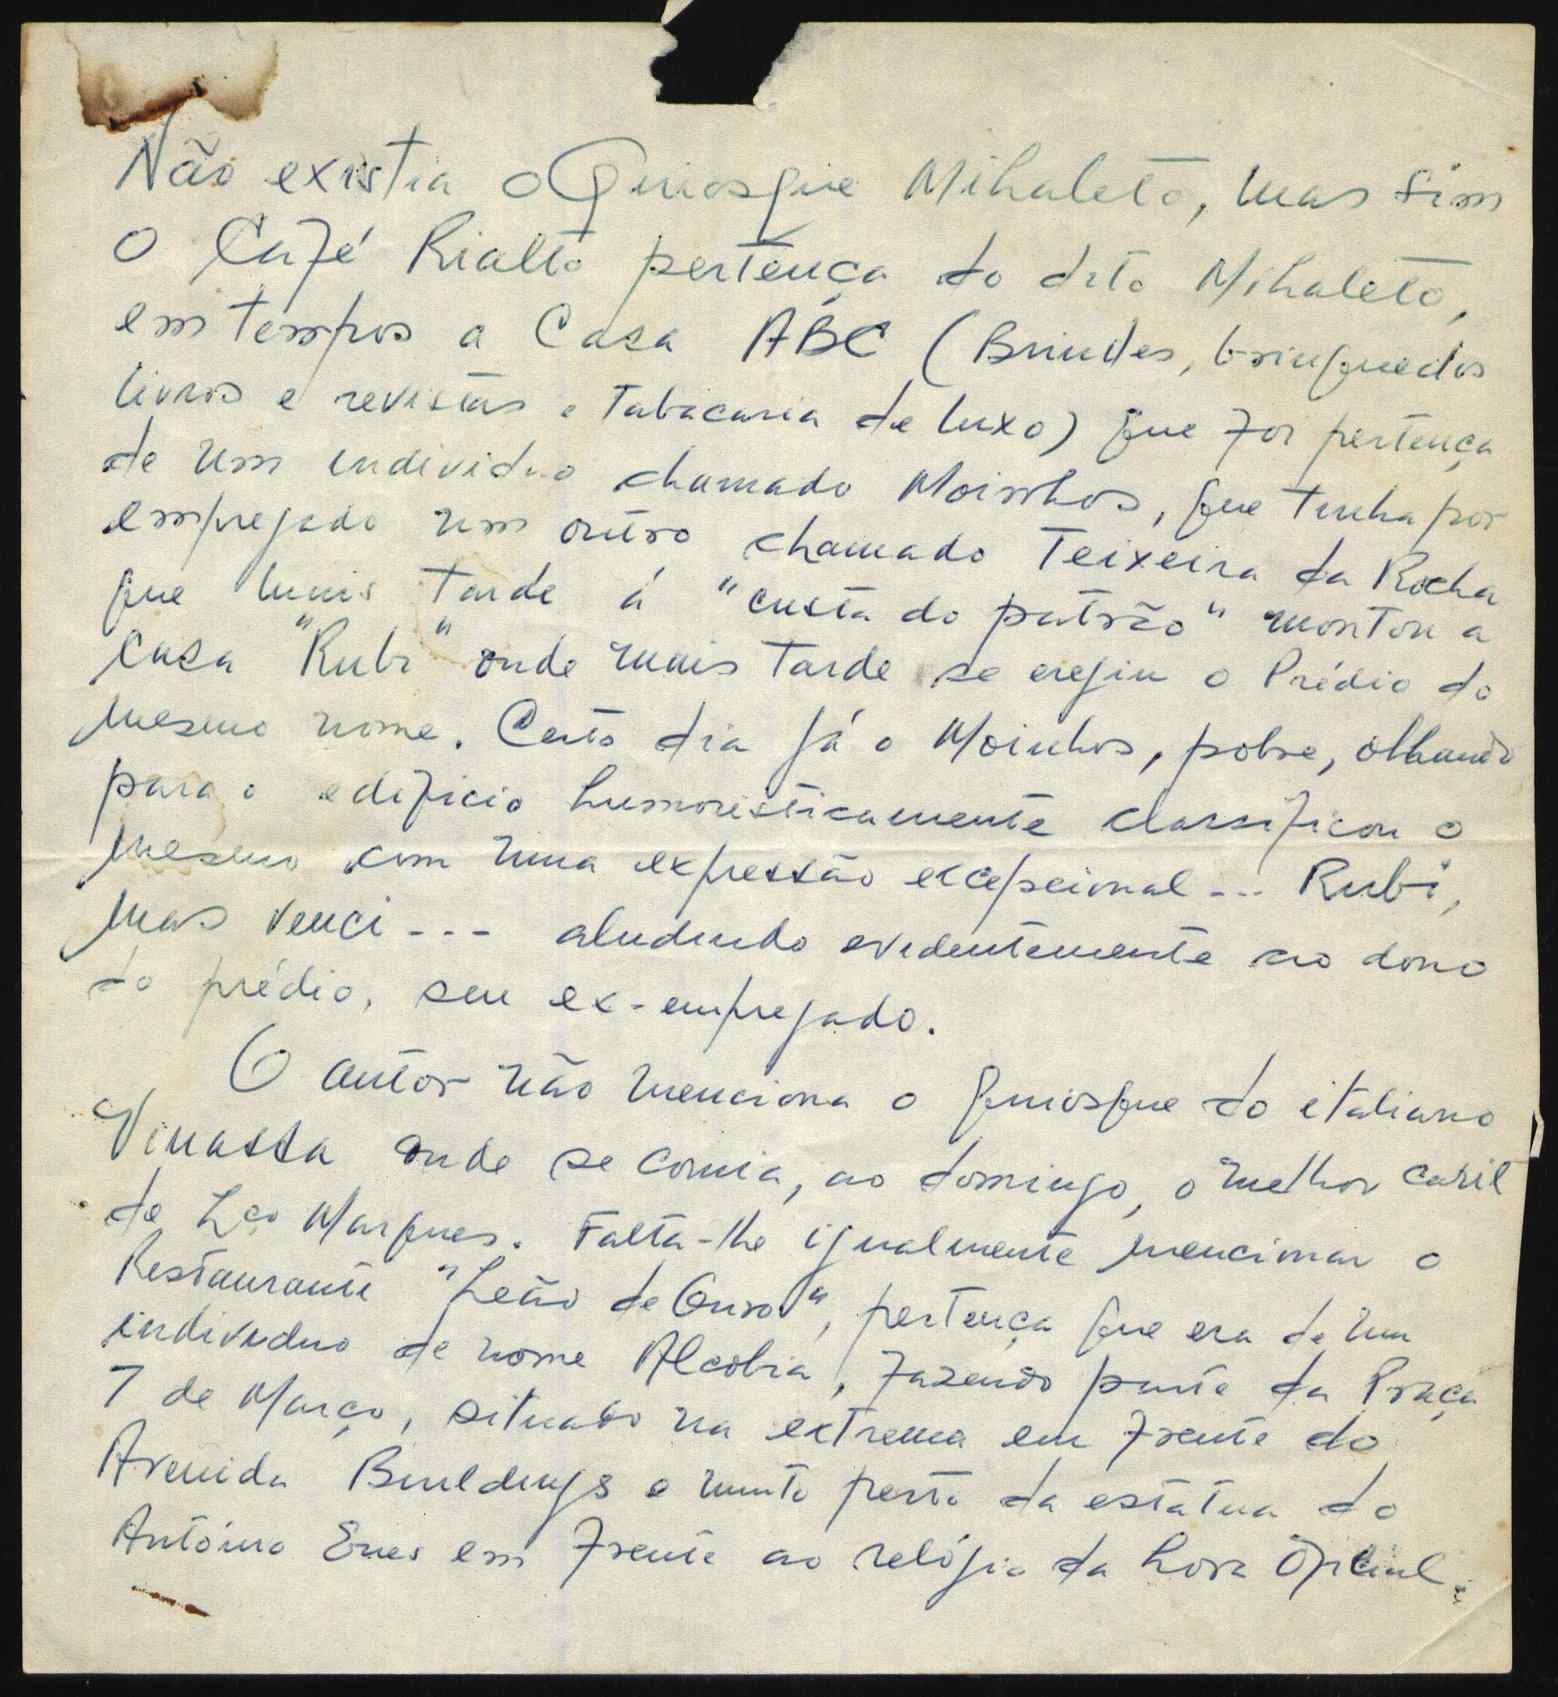 Não existia o Quiosque Mihaleto, mas sim
o Café Rialto pertença do dito Mihaleto,
em tempos a Casa ABC (Brindes, brinquedos
livros e revistas e Tabacaria de luxo) que foi pertença
de um individuo chamado Moinhos, que tinha por
empregado um outro chamado Teixeira da Rocha
que mais tarde á "custa do patrão" montou a
casa "Rubi" onde mais tarde se eregiu o Prédio do
mesmo nome. Certo dia já o Moinhos, pobre, olhando
para o edificio humoristicamente classificou o
mesmo com uma expressão excepcional... Rubi,
mas venci... aludindo evidentemente ao dono
do prédio, seu ex-empregado.
O autor não menciona o quiosque do italiano
Vinassa onde se comia, ao domingo, o melhor caril
de Lço Marques. Falta-lhe igualmente mencionar o
Restaurante "Leão de Ouro", pertença que era de um
individuo de nome Alcobia, fazendo parte da Praça
7 de Março, situado na extrema em frente do
Avenida Buildings e muito perto da estátua do
António Enes em frente ao relógio da hora Oficial.